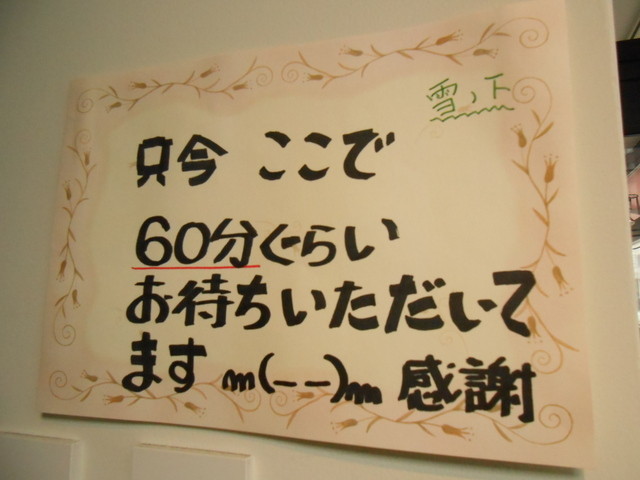 雪ノ下
只今 ここで
60分くらい
お待ちいただいて
ます m(--)m 感謝